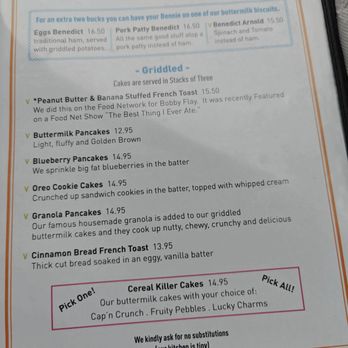 For an extra two bucks you can have your Bennie on one of our buttermilk biscuits.
Eggs Benedict 16.50
traditional ham, served
with griddled potatoes.
Pork Patty Benedict 16.50
All the same good stuff atop a
pork patty instead of ham.
V Benedict Arnold 15.50
Spinach and Tomato
instead of ham.
- Griddled -
Cakes are served in Stacks of Three
V *Peanut Butter & Banana Stuffed French Toast 15.50
We did this on the Food Network for Bobby Flay. It was recently Featured
on a Food Net Show "The Best Thing I Ever Ate."
V Buttermilk Pancakes 12.95
Light, fluffy and Golden Brown
V Blueberry Pancakes 14.95
We sprinkle big fat blueberries in the batter
V Oreo Cookie Cakes 14.95
Crunched up sandwich cookies in the batter, topped with whipped cream
V Granola Pancakes 14.95
Our famous housemade granola is added to our griddled
buttermilk cakes and they cook up nutty, chewy, crunchy and delicious
V Cinnamon Bread French Toast 13.95
Thick cut bread soaked in an eggy, vanilla batter
Pick One!
Cereal Killer Cakes 14.95
Our buttermilk cakes with your choice of:
Cap'n Crunch . Fruity Pebbles . Lucky Charms
Pick All!
We kindly ask for no substitutions
(our kitchen is tiny)